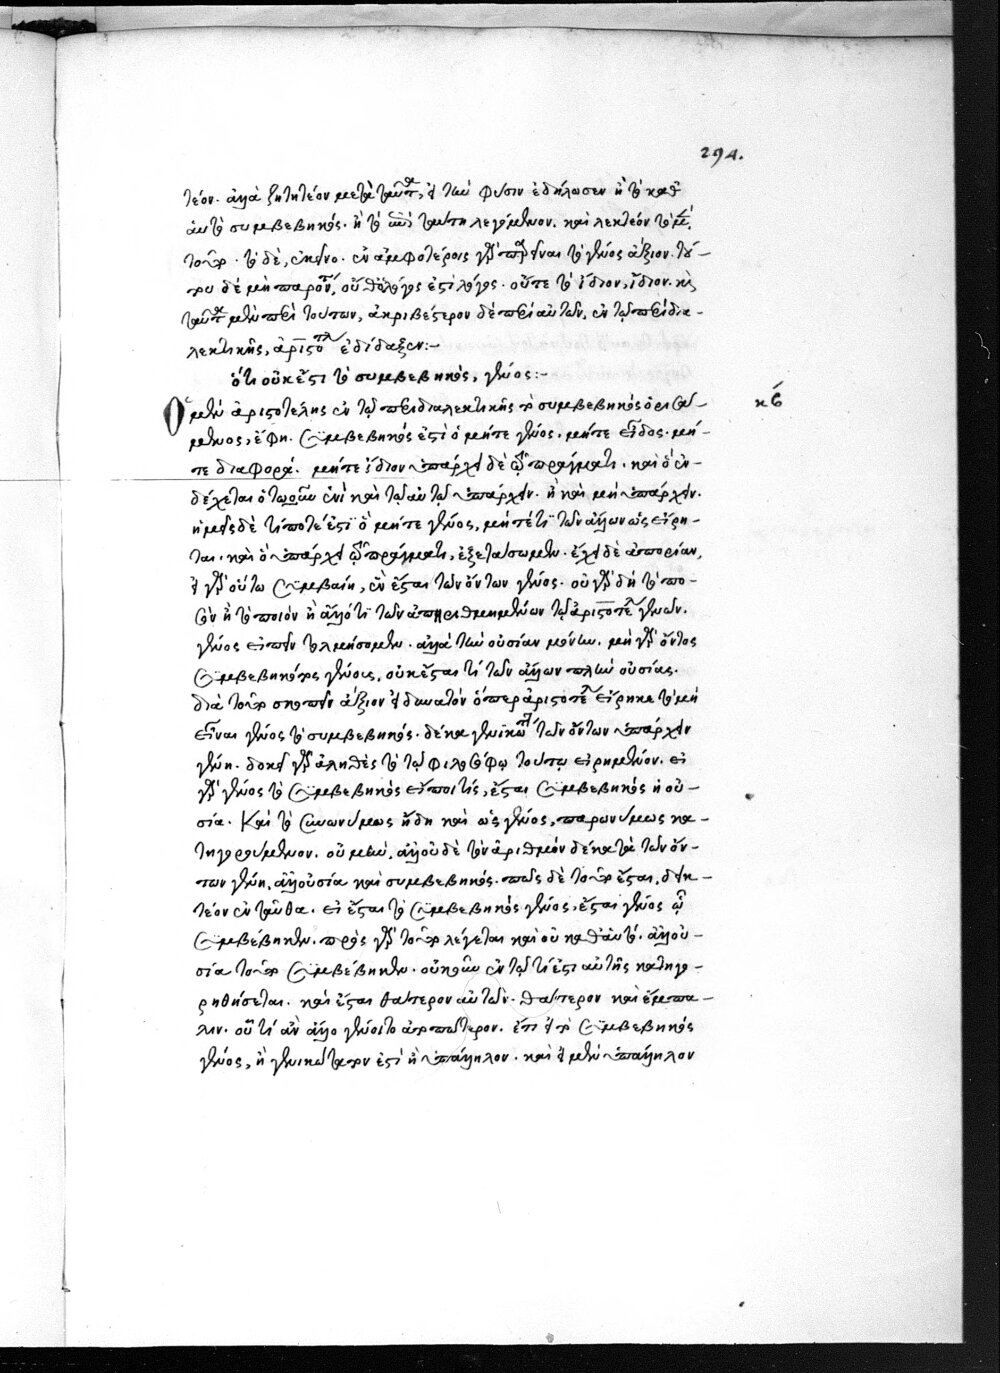 294.
τέον. ἀλλὰ ζητητέον μετὰ ταῦτα, εἰ τὴν φύσιν ἐδήλωσεν ἢ τὸ καθ
αὑτὸ συμβεβηκός. ἢ τὸ ταύτῃ λεγόμενον. καὶ λεκτέον τὸ μὲν
τοῦτο. τὸ δὲ, ἐκεῖνο. ἐν ἀμφοτέροις γὰρ εἶναι τὸ γένος ἄξιον. τού-
του δὲ μὴ παρόντος, οὔθ' ὁ λόγος ἐστὶ λόγος. οὔτε τὸ ἴδιον, ἴδιον. καὶ
ταῦτα μὲν περὶ τούτων, ἀκριβέστερον δὲ περὶ αὐτῶν, ἐν τῷ περὶ δια-
λεκτικῆς, ἀριστοτέλης ἐδίδαξεν:-
ὅτι οὐκ ἔστι τὸ συμβεβηκός, γένος:-
Ὁ μὲν ἀριστοτέλης ἐν τῷ περὶ διαλεκτικῆς τὸ συμβεβηκὸς ὁριζό- κβ
μενος, ἔφη. συμβεβηκός ἐστὶ ὃ μήτε γένος. μήτε εἶδος. μή-
τε διαφορά. μήτε ἴδιον ὑπάρχει δὲ τῷ πράγματι. καὶ ὃ ἐν-
δέχεται ὁτῳοῦν ἑνὶ καὶ τῷ αὐτῷ ὑπάρχειν. ἢ καὶ μὴ ὑπάρχειν.
ἡμεῖς δὲ τί ποτέ ἐστι ὃ μήτε γένος, μήτέ τι τῶν ἄλλων ὡς εἴρη-
ται. καὶ ὃ ὑπάρχει τῷ πράγματι, ἐξετάσωμεν. ἔχει δὲ ἀπορίαν,
εἰ γὰρ οὕτω συμβαίη, ἓν ἔσται τῶν ὄντων γένος. οὐ γὰρ δὴ τὸ πο-
σὸν ἢ τὸ ποιὸν ἢ ἄλλό τι τῶν ἀπηριθμημένων τῷ ἀριστοτέλει γενῶν.
γένος εἰπεῖν τολμήσομεν. ἀλλὰ τὴν οὐσίαν μόνην. μὴ γὰρ ὄντος
συμβεβηκότος γένους, οὐκ ἔσται τί τῶν ἄλλων πλὴν οὐσίας.
διὰ τοῦτο σκοπεῖν ἄξιον εἰ δυνατὸν ὅπερ ἀριστοτέλης εἴρηκε τὸ μὴ
εἶναι γένος τὸ συμβεβηκός. δέκα γενικώτατα τῶν ὄντων ὑπάρχειν
γένη. δοκεῖ γὰρ ἀληθὲς τὸ τῷ φιλοσόφῳ τούτῳ εἰρημένον. εἰ
γὰρ γένος τὸ συμβεβηκὸς εἴποι τίς, ἔσται συμβεβηκὸς ἡ οὐ-
σία. Καὶ τὸ συνωνύμως ἤδη καὶ ὡς γένος, παρωνύμως κα-
τηγορούμενον. οὐ μὴν, ἀλλ' οὐδὲ τὸν ἀριθμὸν δέκα τὰ τῶν ὄν-
των γένη, ἀλλ' οὐσία καὶ συμβεβηκός. πῶς δὲ τοῦτο ἔσται, δεικ-
τέον ἐνταῦθα. εἰ ἔσται τὸ συμβεβηκὸς γένος, ἔσται γένος ᾧ
συμβέβηκεν. πρὸς γὰρ τοῦτο λέγεται καὶ οὐ καθ' αὑτό. ἀλλ' οὐ-
σία τοῦτο συμβέβηκεν. οὐκοῦν ἐν τῷ τί ἐστι αὐτῆς κατηγο-
ρηθήσεται. καὶ ἔσται θάτερον αὐτῶν. θάτερον καὶ ἔμπα-
λιν. οὗ τί ἂν ἄλλο γένοιτο ἀτοπώτερον. ἔτι εἰ τὸ συμβεβηκὸς
γένος, ἢ γενικώτατον ἐστὶ ἢ ὑπάλληλον. καὶ εἰ μὲν ὑπάλληλον